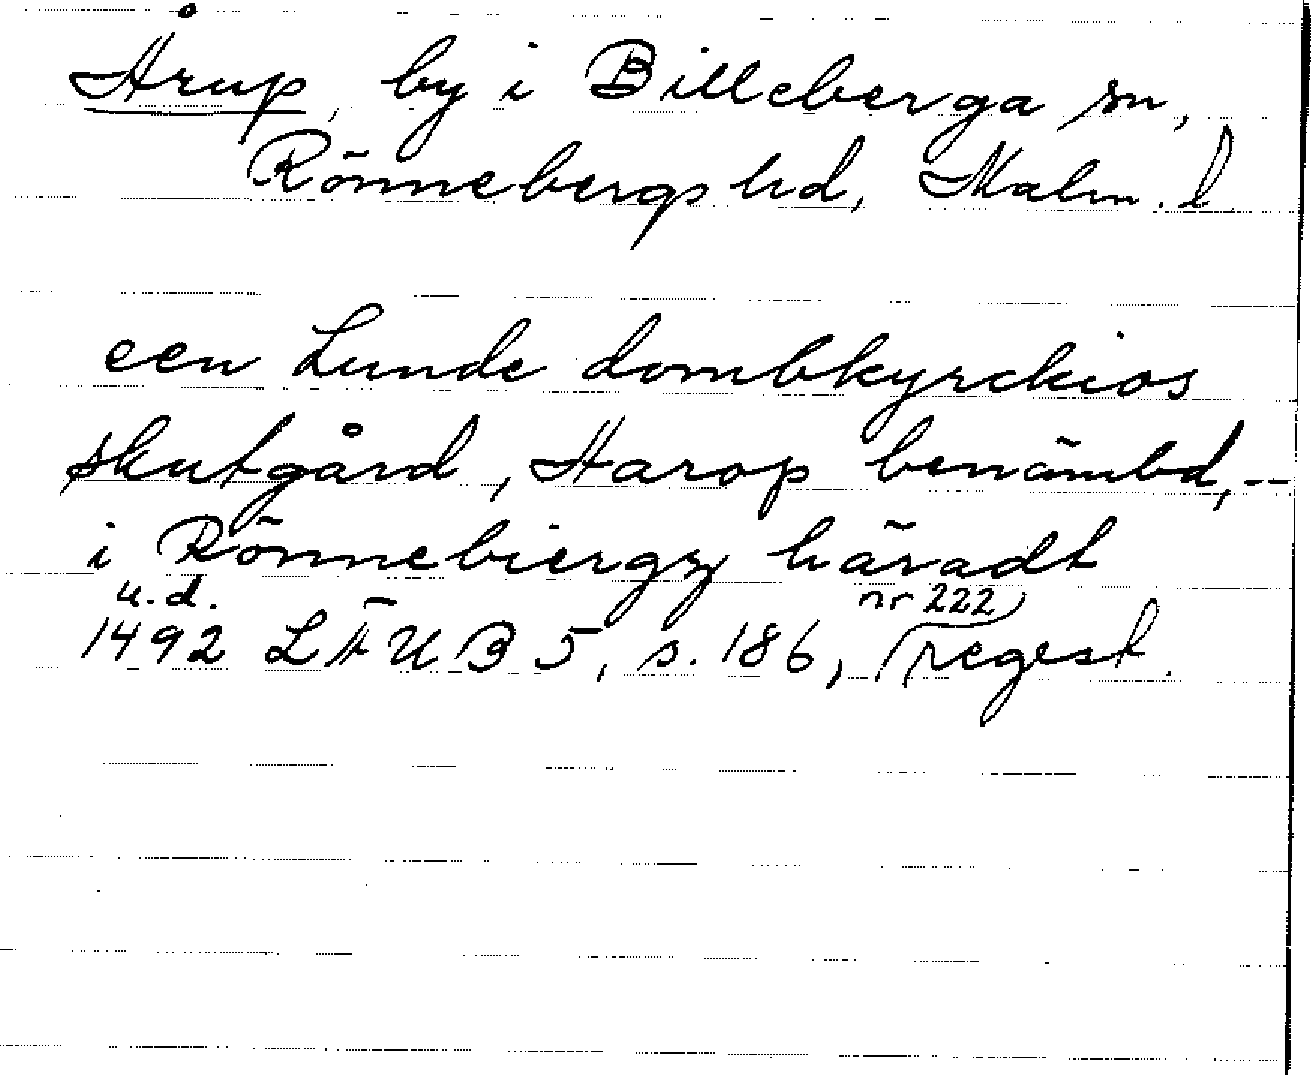 Årup, by i Billeberga sn,
Rönnebergs hd, Malm. l
een Lunde dombkyrckios
skutgård, Harop benämbd, --
i Rönnebiergz häradt
u.d. nr 222
1492 LÄUB 5, s. 186, regest.